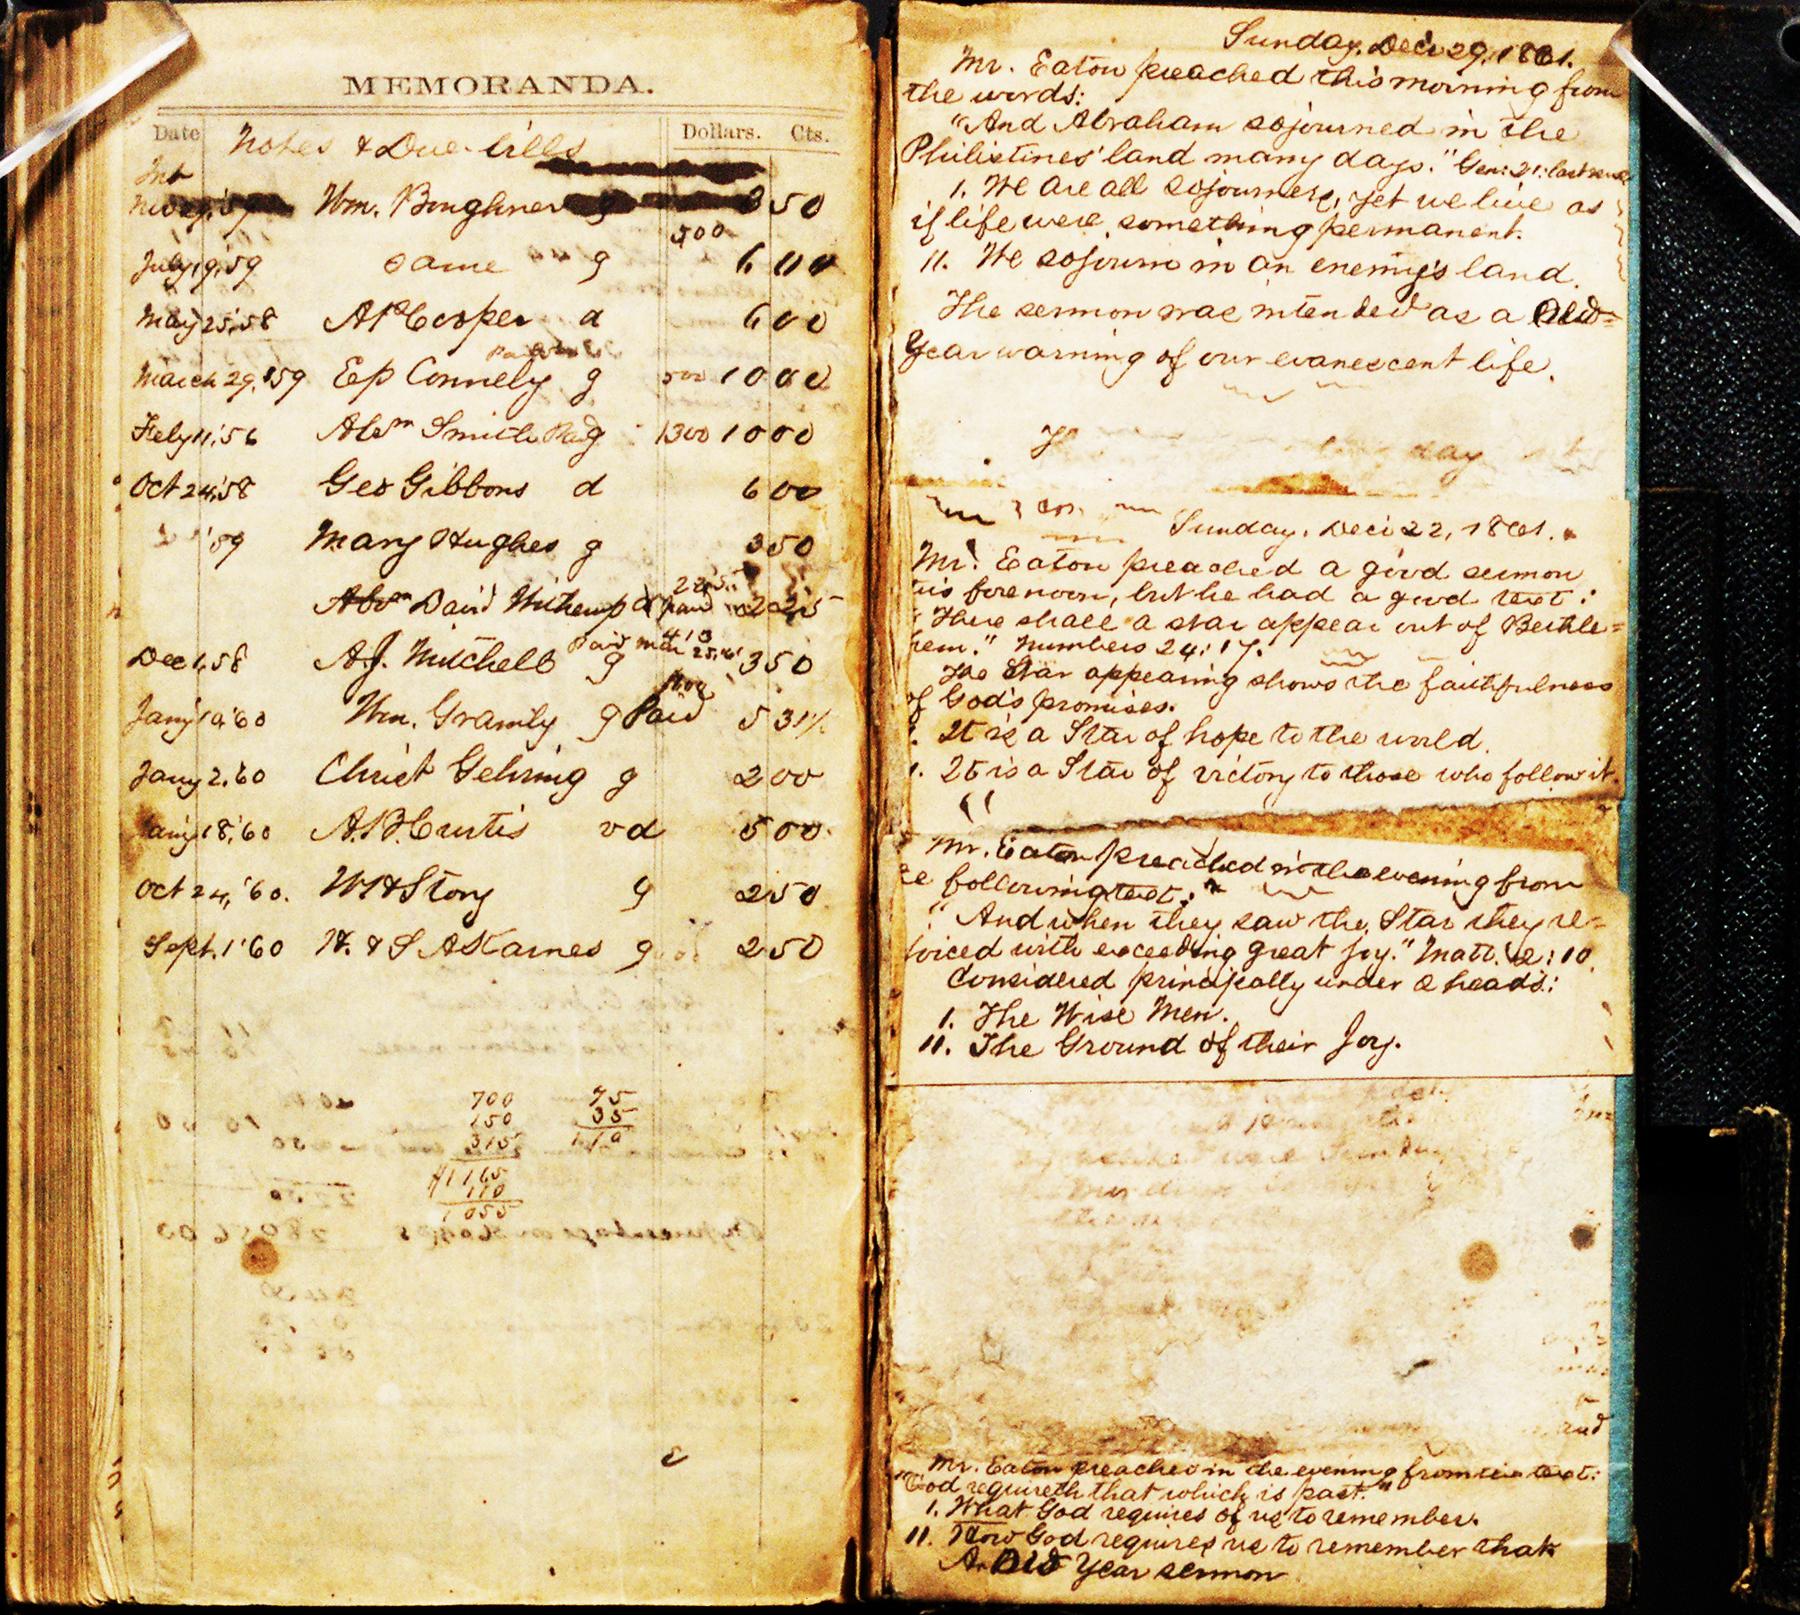 MEMORANDA.
Date Notes & Due-bills Dollars. Cts.
Int
Wm. Boughner 3 50
500
July 19, '59 same g 6 00
May 25, '58 A P Cooper d 6 00
March 29, '59 Eep Connely g 500 10 00
Feby 11, '56 Abrm Smith Paid g 1300 10 00
Oct 24, '58 Geo Gibbons d 6 00
'59 Mary Hughes g 3 50
2 25
Abrm David d paid 2 25
Paid Mch 25, '61
Dec 1, 58 A.J. Mitchell g 3 50
Jany 10, '60 Wm. Gramly g Paid 5 31½
Jany 2, '60 Christ Gehring g 2 00
Jany 18, '60 A.B. Curtis vd 5 00
Oct 24, '60. W H Story g 2 50
Sept. 1 '60 W. & S A Karnes g 2 50
700 75
150 35
315 110
1165
110
1055
Sunday, Dec. 29, 1861.
Mr. Eaton preached this morning from
the words:
"And Abraham sojourned in the
Philistines' land many days." Gen: 21: last verse
I. We are all sojourners, yet we live as
if life were something permanent.
II. We sojourn in an enemy's land.
The sermon was intended as a Old-
Year warning of our evanescent life.
day
Sunday, Dec. 22, 1861.
Mr. Eaton preached a good sermon
this forenoon, but he had a good text:
"There shall a star appear out of Bethle=
hem." Numbers 24:17.
The Star appearing shows the faithfulness
of God's promises.
I. It is a Star of hope to the world.
It is a Star of victory to those who follow it.
Mr. Eaton preached in the evening from
following text:
"And when they saw the Star they re=
joiced with exceeding great joy." Matt. 2:10.
Considered principally under 2 heads:
I. The Wise Men.
II. The Ground of their Joy.
and
Mr. Eaton preached in the evening from this text:
"God requireth that which is past."
I. What God requires of us to remember.
II. How God requires us to remember that
An Old Year sermon